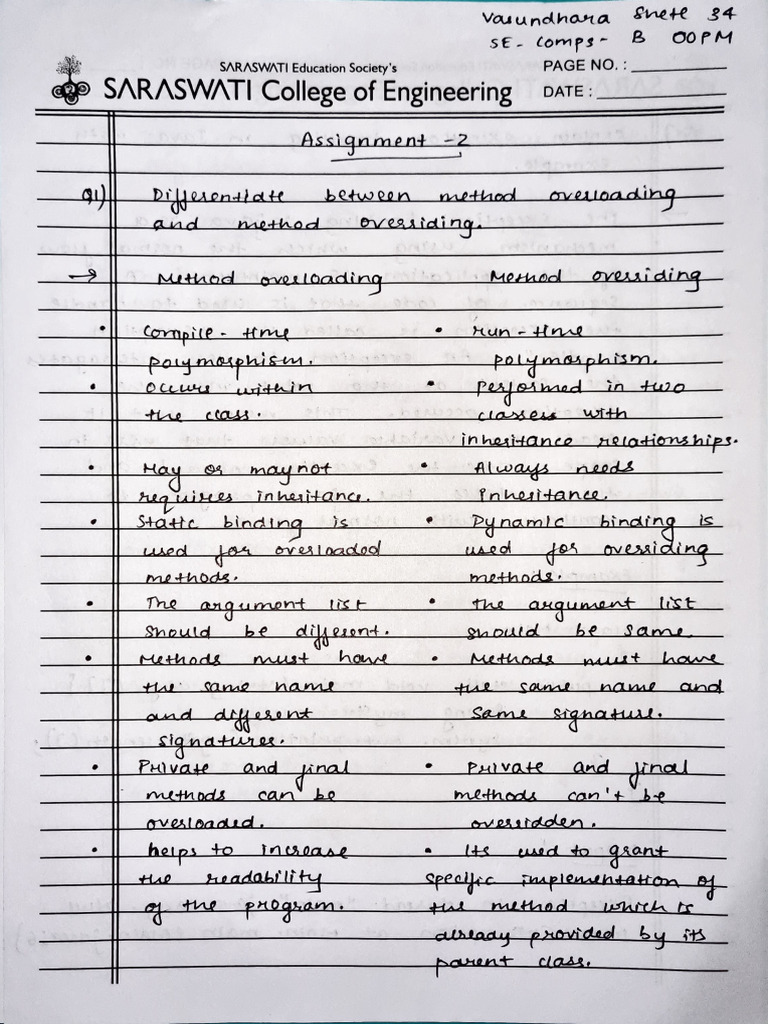 Vasundhara Shete 34
SE- Comps- B OOPM
SARASWATI Education Society's
SARASWATI College of Engineering
PAGE NO. :
DATE :
Assignment -2
Q1) Differentiate between method overloading
and method overriding.
→ Method overloading Method overriding
• Compile - time • run - time
polymorphism. polymorphism.
• Occurs within • Performed in two
the class. classes with
inheritance relationships.
• May or may not • Always needs
requires inheritance. inheritance.
• Static binding is • Dynamic binding is
used for overloaded used for overriding
methods. methods.
• The argument list • The argument list
should be different. should be same.
• Methods must have • Methods must have
the same name the same name and
and different same signature.
signatures.
• Private and final • Private and final
methods can be methods can't be
overloaded. overridden.
• helps to increase • Its used to grant
the readability specific implementation of
of the program. the method which is
already provided by its
parent class.